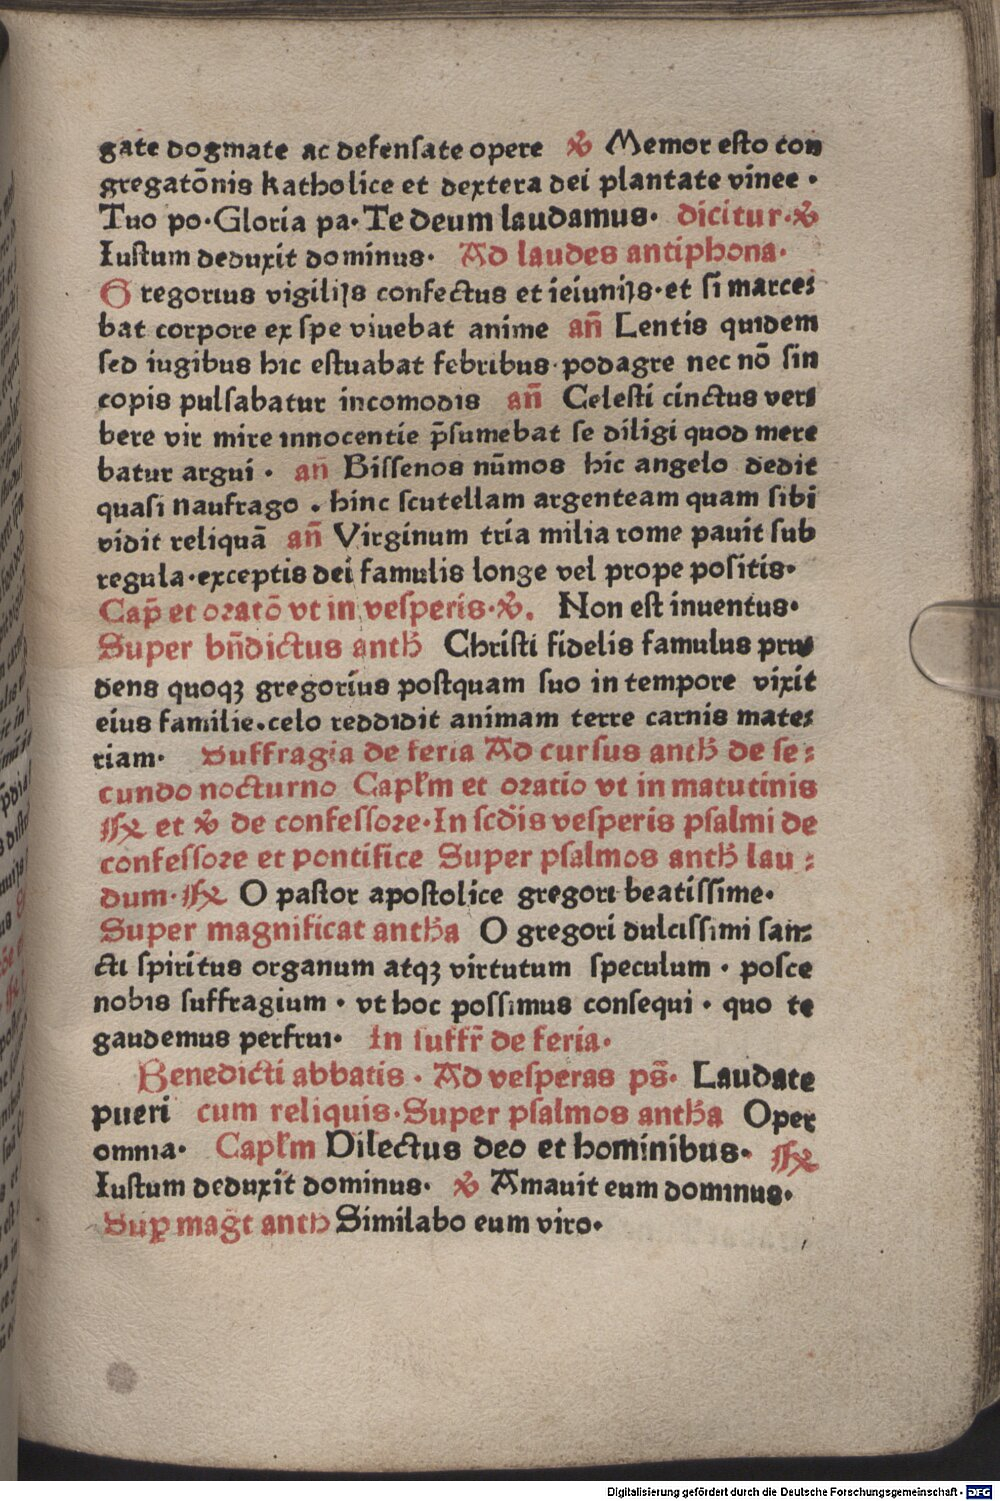 gate dogmate ac defensate opere ℣ Memor esto con
gregatōnis katholice et dextera dei plantate vinee .
Tuo po. Gloria pa. Te deum laudamus. dicitur. ℣
Iustum deduxit dominus. Ad laudes antiphona.
Gregorius vigilijs confectus et ieiunijs. et si marces
bat corpore ex spe viuebat anime añ Lentis quidem
sed iugibus hic estuabat febribus. podagre nec nō sin
copis pulsabatur incomodis añ Celesti cinctus vers
bere vir mire innocentie p̄sumebat se diligi quod mere
batur argui . añ Bissenos nūmos hic angelo dedit
quasi naufrago . hinc scutellam argenteam quam sibi
vidit reliquā añ Virginum tria milia rome pauit sub
regula. exceptis dei famulis longe vel prope positis.
Cap̄ et oratō vt in vesperis. ℣. Non est inuentus.
Super bn̄dictus anth Christi fidelis famulus pru
dens quoqꝫ gregorius postquam suo in tempore vixit
eius familie. celo reddidit animam terre carnis mates
riam. Suffragia de feria Ad cursus anth de se:
cundo nocturno Capl̄m et oratio vt in matutinis
℟ et ℣ de confessore. In scd̄is vesperis psalmi de
confessore et pontifice Super psalmos anth lau :
dum. ℟ O pastor apostolice gregori beatissime.
Super magnificat antha O gregori dulcissimi san:
cti spiritus organum atqꝫ virtutum speculum . posce
nobis suffragium . vt hoc possimus consequi . quo te
gaudemus perfrui. In suffr̄ de feria.
Benedicti abbatis . Ad vesperas ps̄. Laudate
pueri cum reliquis. Super psalmos antha Oper
omnia. Capl̄m Dilectus deo et hominibus. ℟
Iustum deduxit dominus. ℣ Amauit eum dominus.
Suꝑ mag̃t anth Similabo eum viro.
Digitalisierung gefördert durch die Deutsche Forschungsgemeinschaft - DFG